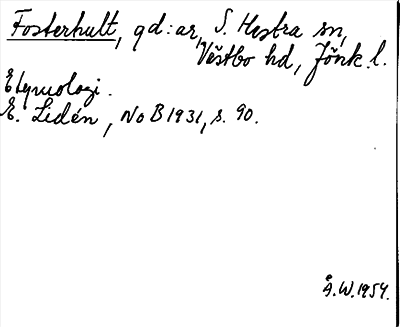 Fosterhult, gd:ar, S. Hestra sn,
Västbo hd, Jönk. l.
Etymologi.
E. Lidén, NoB 1931, s. 90.
Å.W. 1954.